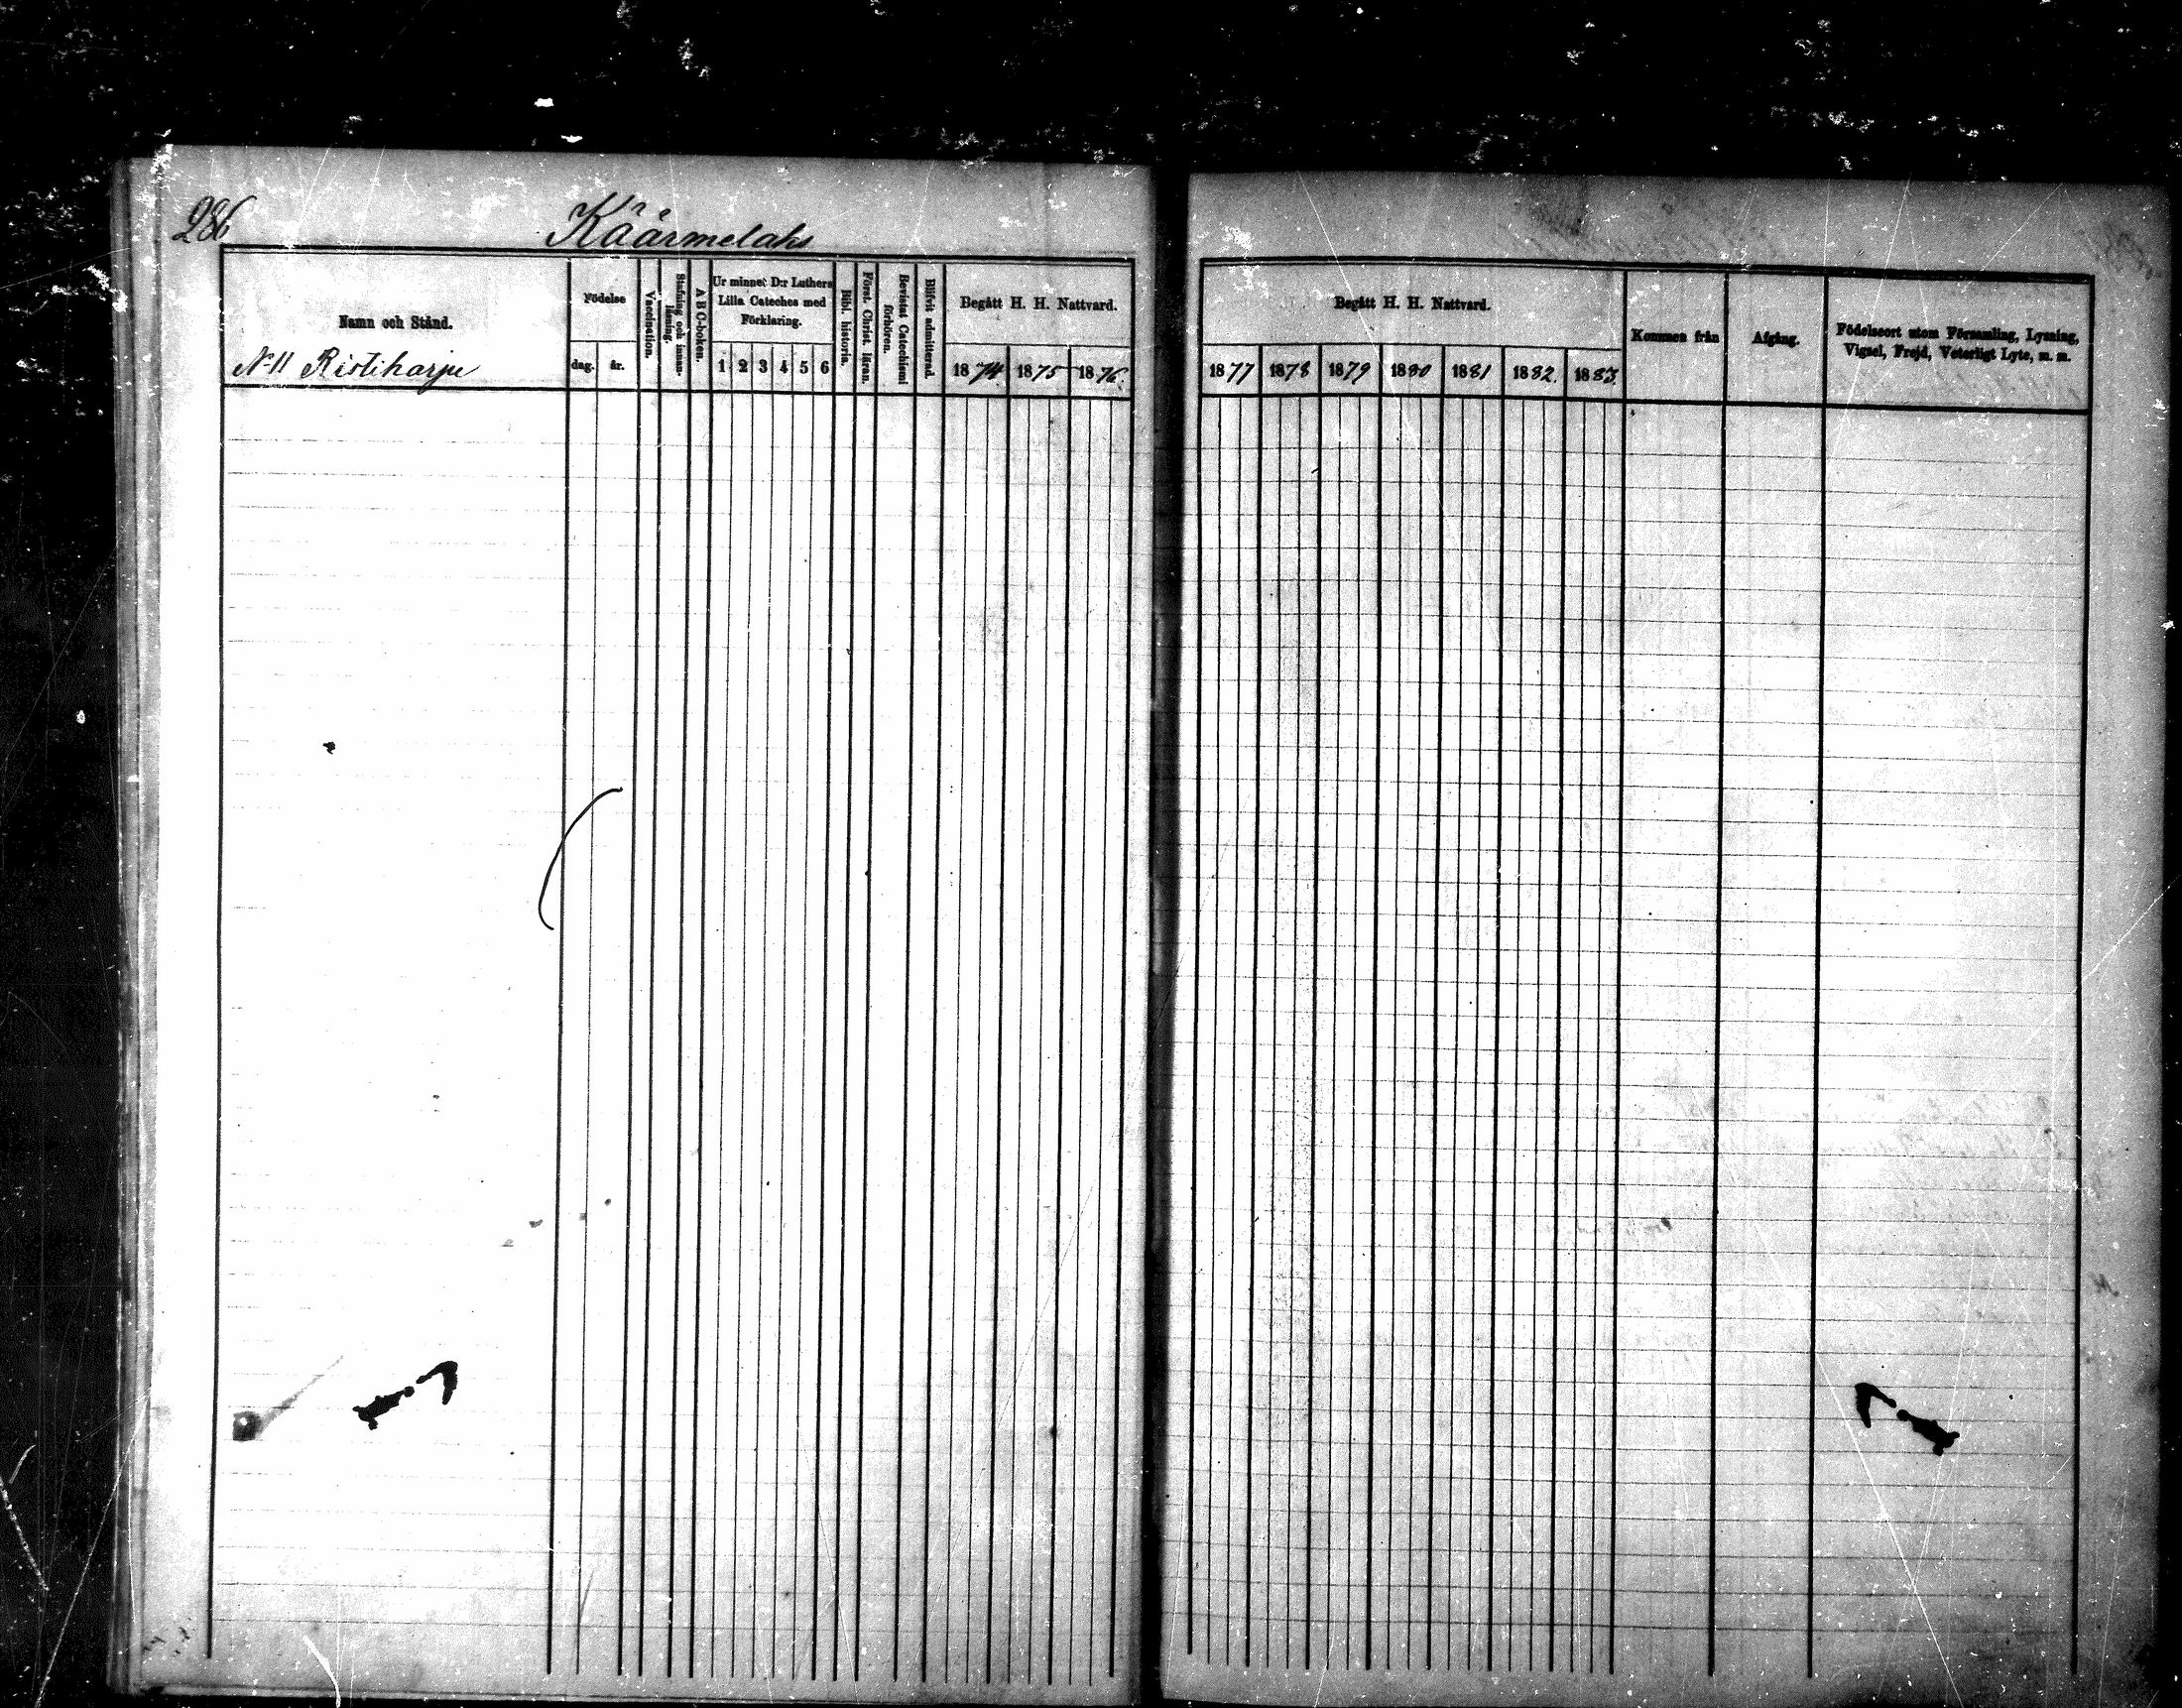 286
Käärmelaks
Namn och Stånd.
N 11 Ristiharju
Födelse
dag. år.
Vaccination.
Stafning och innan-
läsning.
A B C-boken.
Ur minnet D:r Luthers
Lilla Cateches med
Förklaring.
1 2 3 4 5 6
Bibl. historia.
Först. Christ. läran.
Bevistat Catechismi
förhören.
Blifvit admitterad.
Begått H. H. Nattvard.
1874 1875 1876.
Begått H. H. Nattvard.
1877 1878 1879 1880 1881 1882. 1883.
Kommen från
Afgång.
Födelseort utom Församling, Lysning,
Vigsel, Frejd, Veterligt Lyte, m. m.